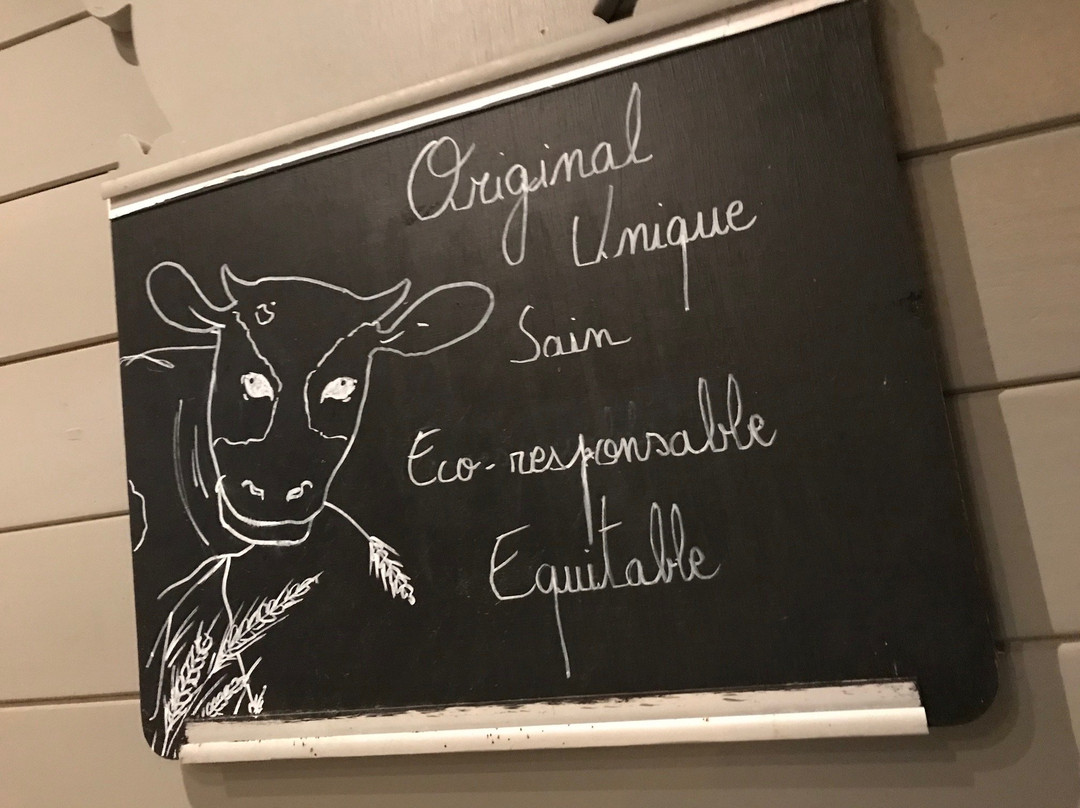 Original
Unique
Sain
Eco-responsable
Equitable